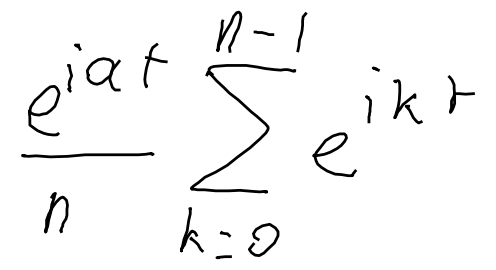 \frac{e^{iat}}{n} \sum_{k=0}^{n-1} e^{ikt}